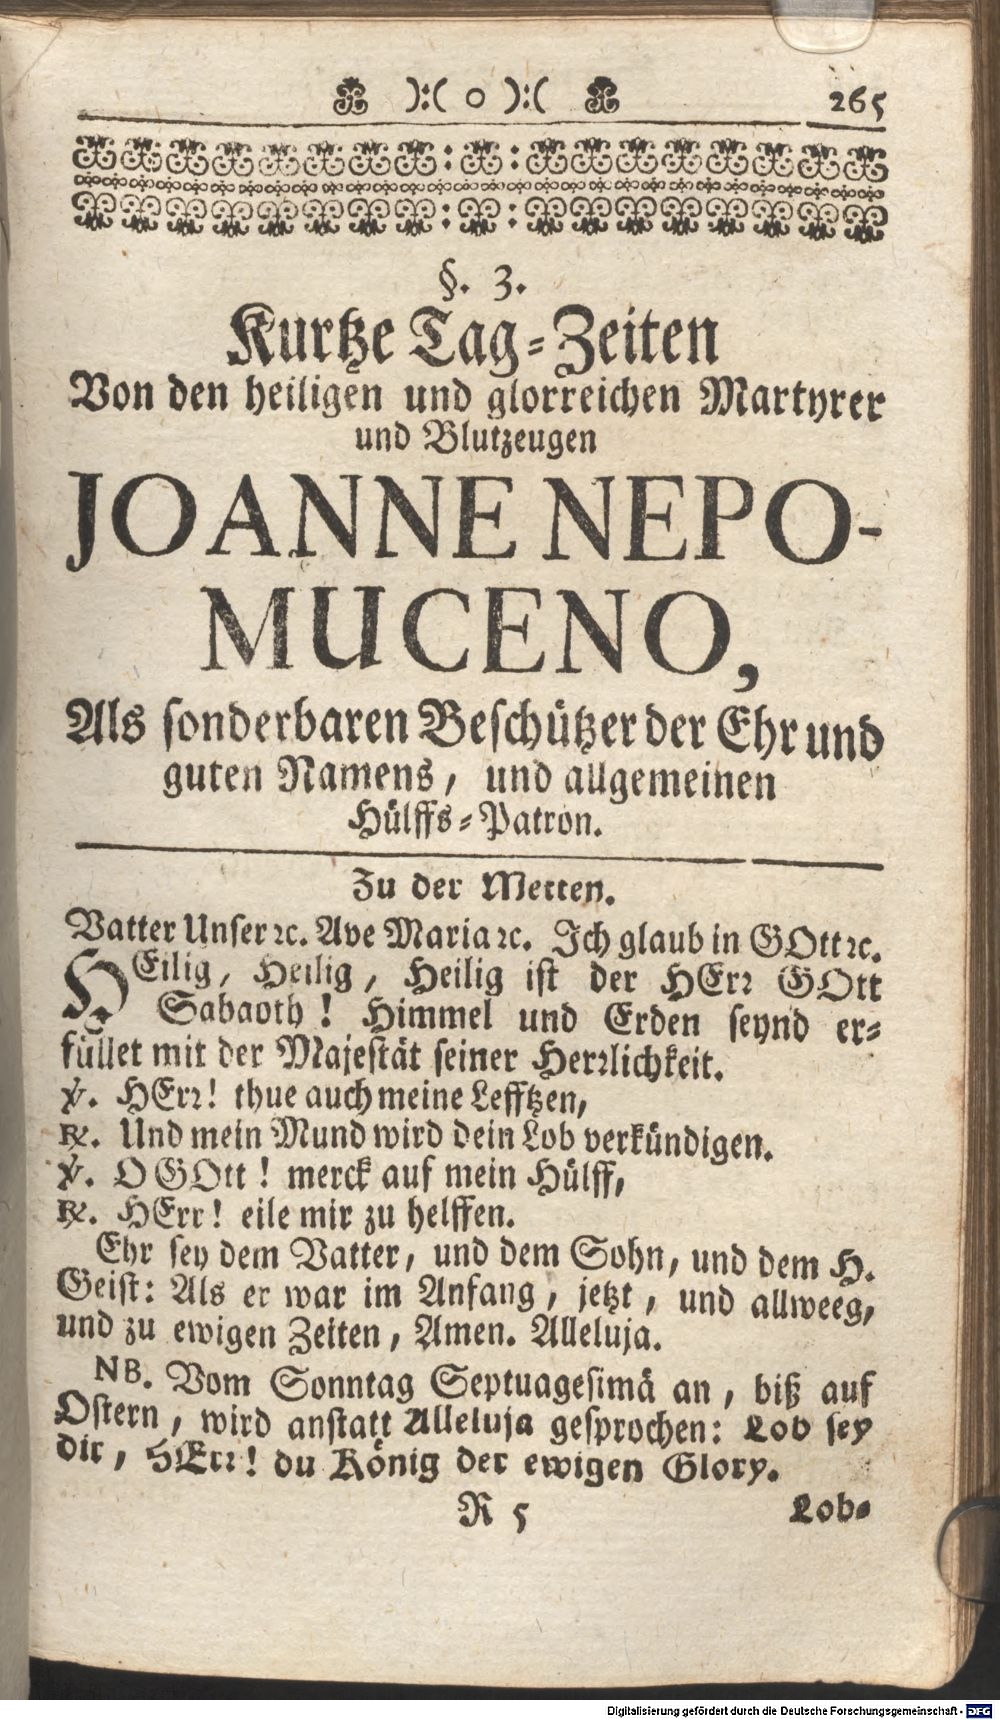 ):( o ):( 265
§. 3.
Kurtze Tag-Zeiten
Von den heiligen und glorreichen Martyrer
und Blutzeugen
JOANNE NEPO-
MUCENO,
Als sonderbaren Beschützer der Ehr und
guten Namens, und allgemeinen
Hülffs-Patron.
Zu der Metten.
Vatter Unser ꝛc. Ave Maria ꝛc. Ich glaub in GOtt ꝛc.
HEilig, Heilig, Heilig ist der HErꝛ GOtt
Sabaoth! Himmel und Erden seynd er-
füllet mit der Majestät seiner Herꝛlichkeit.
℣. HErꝛ! thue auch meine Lefftzen,
℟. Und mein Mund wird dein Lob verkündigen.
℣. O GOtt! merck auf mein Hülff,
℟. HErr! eile mir zu helffen.
Ehr sey dem Vatter, und dem Sohn, und dem H.
Geist: Als er war im Anfang, jetzt, und allweeg,
und zu ewigen Zeiten, Amen. Alleluja.
NB. Vom Sonntag Septuagesimä an, biß auf
Ostern, wird anstatt Alleluja gesprochen: Lob sey
dir, HErꝛ! du König der ewigen Glory.
R 5 Lob-
Digitalisierung gefördert durch die Deutsche Forschungsgemeinschaft - DFG